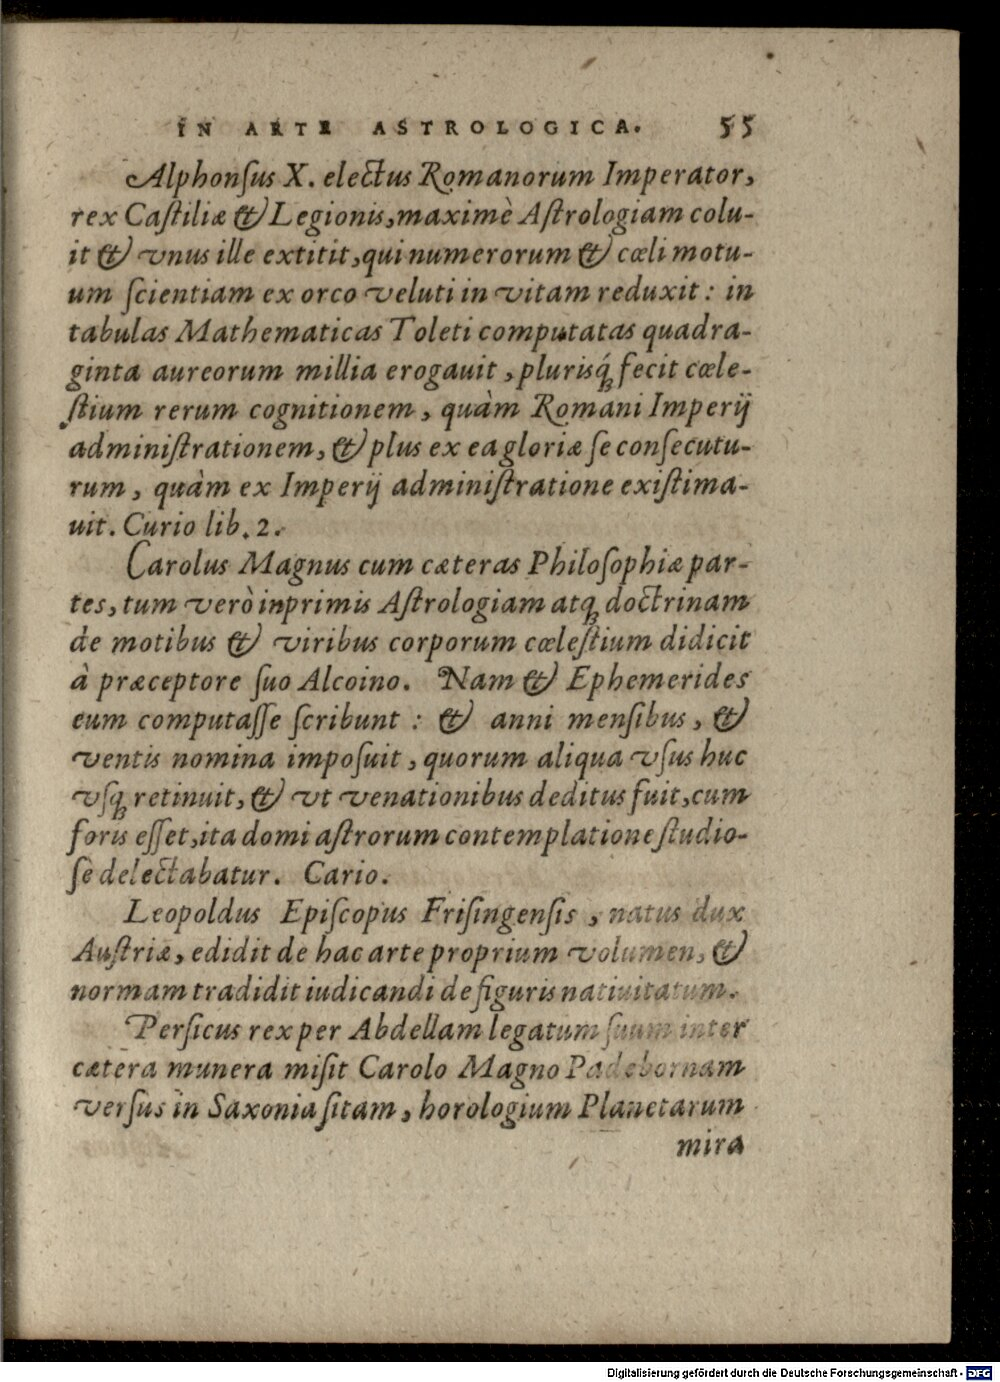 IN ARTE ASTROLOGICA. 55
Alphonſus X. electus Romanorum Imperator,
rex Caſtiliæ & Legionis, maximè Aſtrologiam colu-
it & vnus ille extitit, qui numerorum & cœli motu-
um ſcientiam ex orco veluti in vitam reduxit: in
tabulas Mathematicas Toleti computatas quadra-
ginta aureorum millia erogauit, plurisq́; fecit cœle-
ſtium rerum cognitionem, quàm Romani Imperij
adminiſtrationem, & plus ex ea gloriæ ſe conſecutu-
rum, quàm ex Imperij adminiſtratione exiſtima-
uit. Curio lib. 2.
Carolus Magnus cum cæteras Philoſophiæ par-
tes, tum verò inprimis Aſtrologiam atq; doctrinam
de motibus & viribus corporum cœleſtium didicit
à præceptore ſuo Alcoino. Nam & Ephemerides
eum computaſſe ſcribunt: & anni menſibus, &
ventis nomina impoſuit, quorum aliqua vſus huc
vſq; retinuit, & vt venationibus deditus fuit, cum
foris eſſet, ita domi aſtrorum contemplatione ſtudio-
ſè delectabatur. Cario.
Leopoldus Epiſcopus Friſingenſis, natus dux
Auſtriæ, edidit de hac arte proprium volumen, &
normam tradidit iudicandi de figuris natiuitatum.
Perſicus rex per Abdellam legatum ſuum inter
cætera munera miſit Carolo Magno Padebornam
verſus in Saxonia ſitam, horologium Planetarum
mira
Digitalisierung gefördert durch die Deutsche Forschungsgemeinschaft - DFG